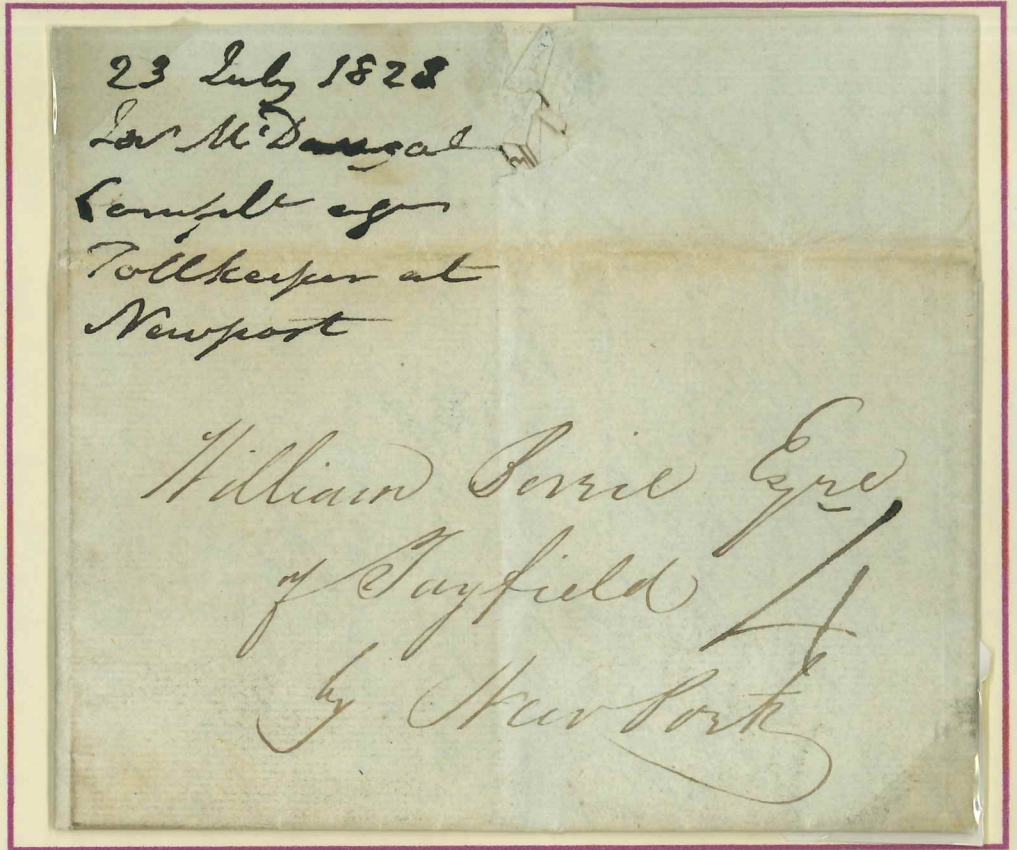 23 July 1828
McDougal
Complt agn
Tollkeeper at
Newport
William Berrie Esqre
of Tayfield
4
by New Port